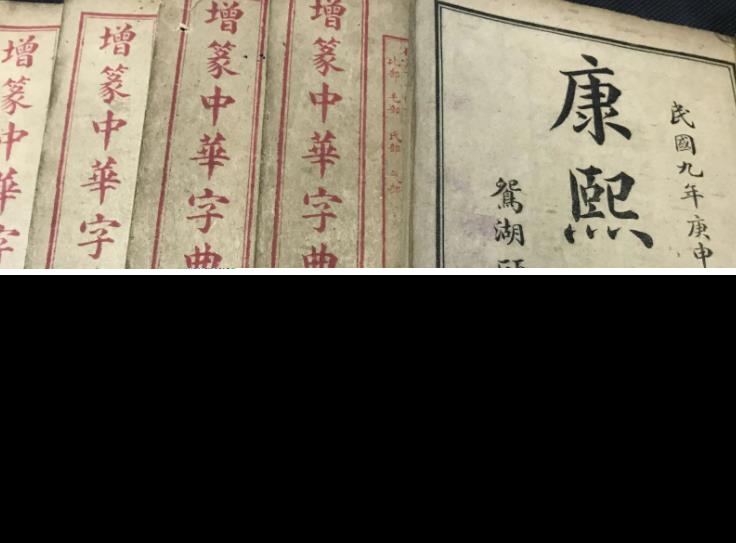 增篆中華字
增篆中華字
增篆中華字典
增篆中華字典
比部 毛部 氏部
民國九年庚申
康熙
鴛湖